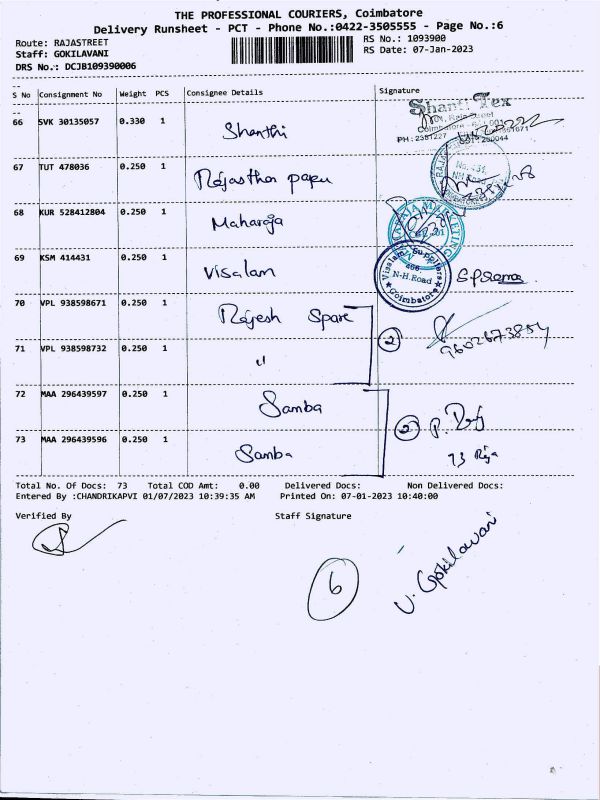 THE PROFESSIONAL COURIERS, Coimbatore
Delivery Runsheet - PCT - Phone No.:0422-3505555 - Page No.:6
Route: RAJASTREET
RS No.: 1093900
Staff: GOKILAVANI
RS Date: 07-Jan-2023
DRS No.: DCJB109390006
S No Consignment No Weight PCS Consignee Details Signature
66 SVK 30135057 0.330 1 Shanthi
Shanti Tex
67 TUT 478036 0.250 1 Rajasthan paper
68 KUR 528412804 0.250 1 Maharaja
69 KSM 414431 0.250 1 Visalam
Visalam Suppliers
N-H.Road
Coimbatore
70 VPL 938598671 0.250 1 Rajesh Spare
71 VPL 938598732 0.250 1 "
2
9602673854
72 MAA 296439597 0.250 1 Samba
73 MAA 296439596 0.250 1 Samba
2
73 Raja
Total No. Of Docs: 73 Total COD Amt: 0.00 Delivered Docs: Non Delivered Docs:
Entered By :CHANDRIKAPVI 01/07/2023 10:39:35 AM Printed On: 07-01-2023 10:40:00
Verified By Staff Signature
6
V. Gokilavani